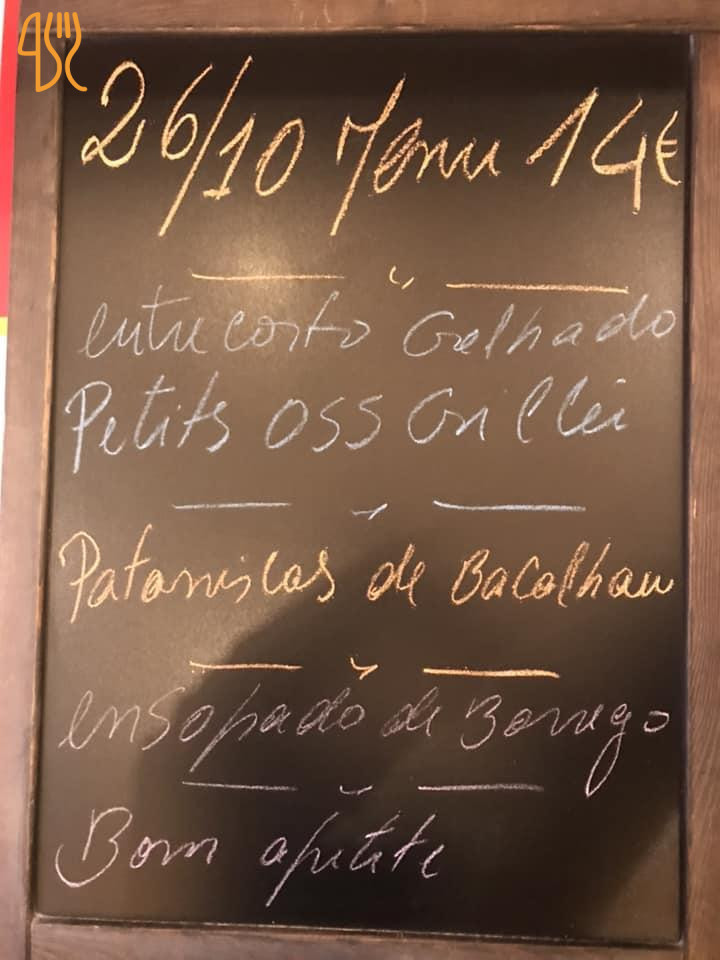 26/10 Menu 14€
entrecosto Grelhado
Petits OSS Grillei
Pataniscas de Bacalhau
ensopado de Borrego
Bom apetite